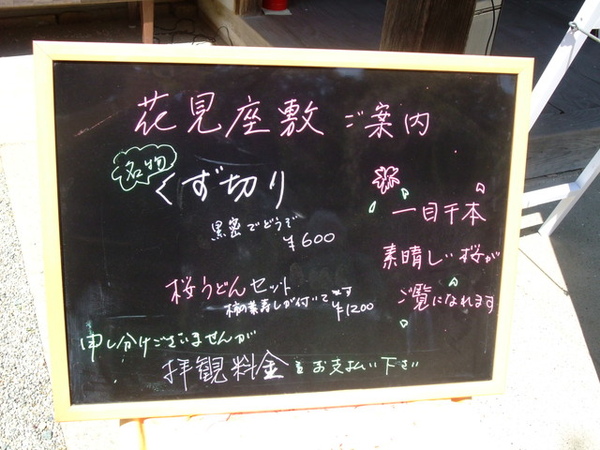 花見座敷ご案内
名物
くず切り
黒蜜でどうぞ
¥600
桜うどんセット
柿の葉寿しが付いてます
¥1200
一目千本
素晴しい桜が
ご覧になれます
申し分けございませんが
拝観料金をお支払い下さい